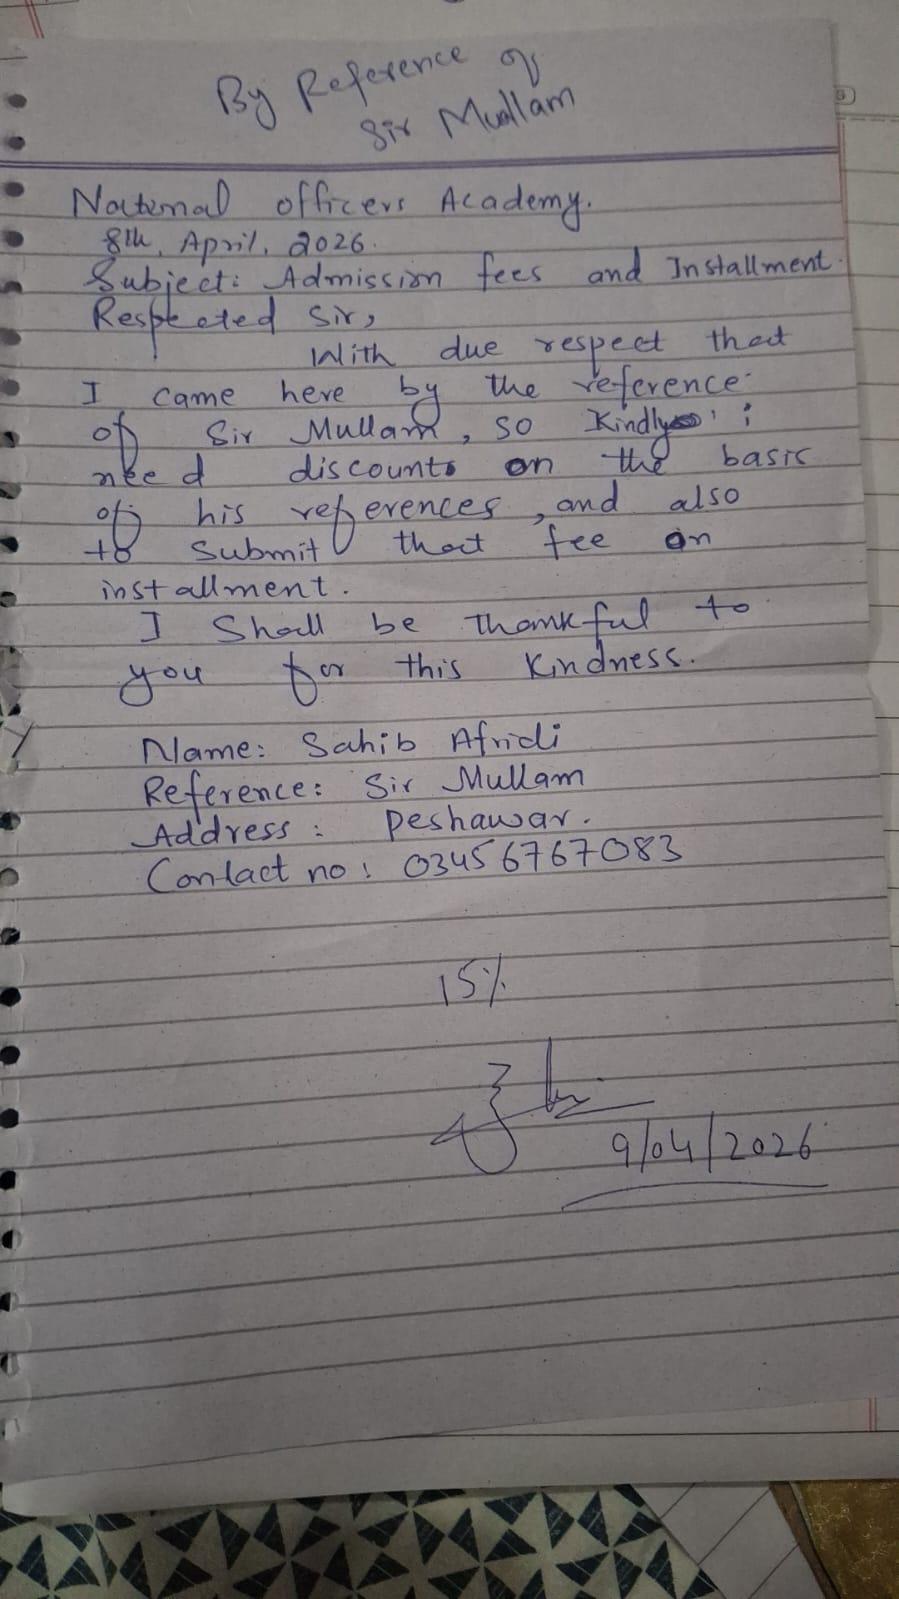 By Reference of
Sir Mudlam
National officers Academy.
8th, April, 2026.
Subject: Admission fees and Installment.
Respected Sir,
With due respect that
I came here by the reference
of Sir Mullam, so Kindly i
need discounts on the basis
of his references, and also
to Submit that fee on
installment.
I Shall be thankful to
you for this Kindness.
Name: Sahib Afridi
Reference: Sir Mullam
Address: Peshawar.
Contact no: 03456767083
15%
9/04/2026